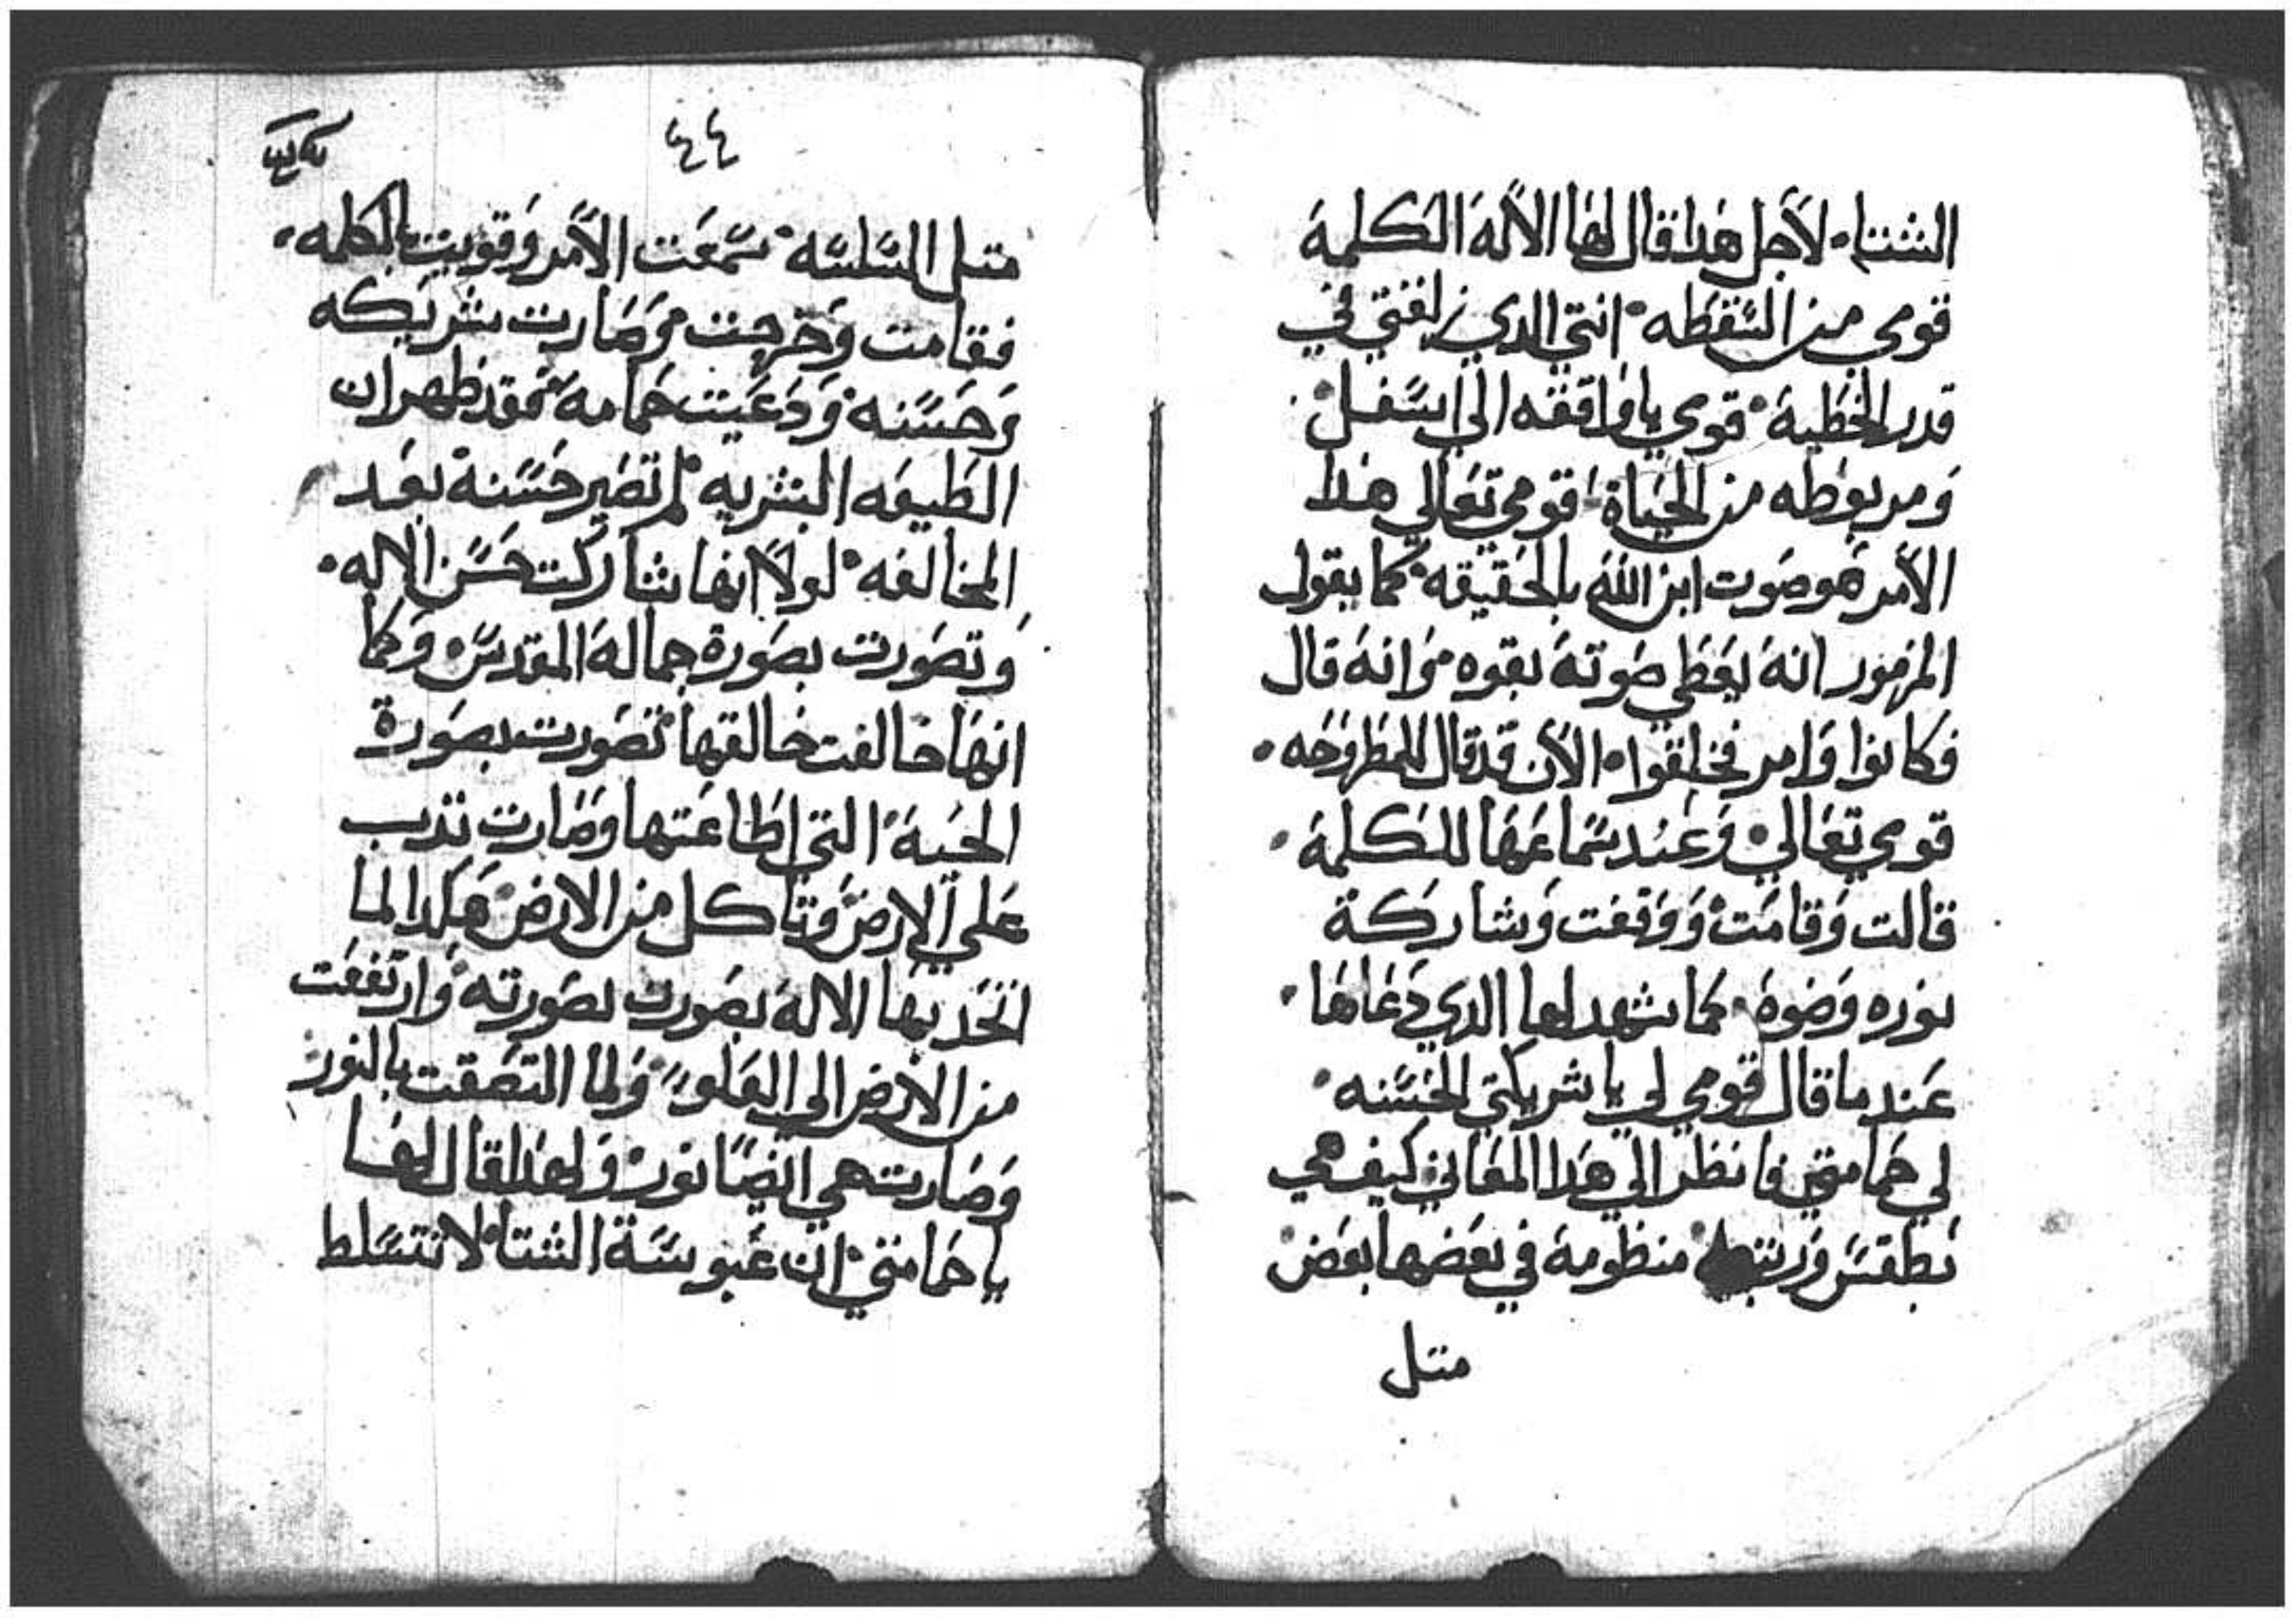 الشتاء. لاجل هدا قال لها الاله الكلمة
قومي من السقطه. انتي الدي زلغتي في
قدر الخطية. قومي يا واقفه الي اسفل.
ومربوطه من الحياة. قومي تعالي هدا
الامر هو صوت ابن الله بالحقيقه. كما يقول
المزمور انه يعطي صوته بقوه. وانه قال
فكانوا وامر فخلقوا. الان قد قال للمطروحه.
قومي تعالي. وعند سماعها للكلمة.
قالت وقامت. ووقفت وشاركة
نوره وضوة. كما شهد لها الدي دعاها.
عند ما قال قومي لي يا شريكتي الحسنه.
لي حمامتي فانظر الي هدا المعاني كيف هي
بطقس ورتبه منظومة في بعضها بعض
متل
٤٤
متل السلسه. سمعت الامر وقويت بالكلمه.
فقامت وخرجت. وصارت شريكه
وحسنه. ودعيت حمامة. فقد ظهر ان
الطبيعه البشريه. لم تصير حسنة بعد
المخالفه. لولا انها شاركت حسن الاله.
وتصورت بصورة جماله المقدس. وكما
انها خالفت خالقها. تصورت بصورة
الحية التي اطاعتها وصارت تدب
علي الارض. وتاكل من الارض. هكدا لما
اتحد بها الاله بصورت بصورته. وارتفعت
من الارض الي العلو. ولما التصقت بالنور.
وصارت هي ايضا نور. ولهدا قال لها
يا حمامتي. ان عبوسة الشتا. لا تتسلط